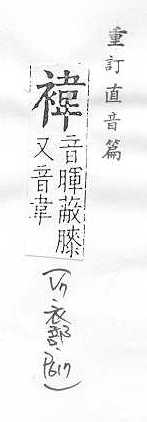 重訂直音篇
褘
音暉蔽膝
又音韋
(Vη衣部.P617)